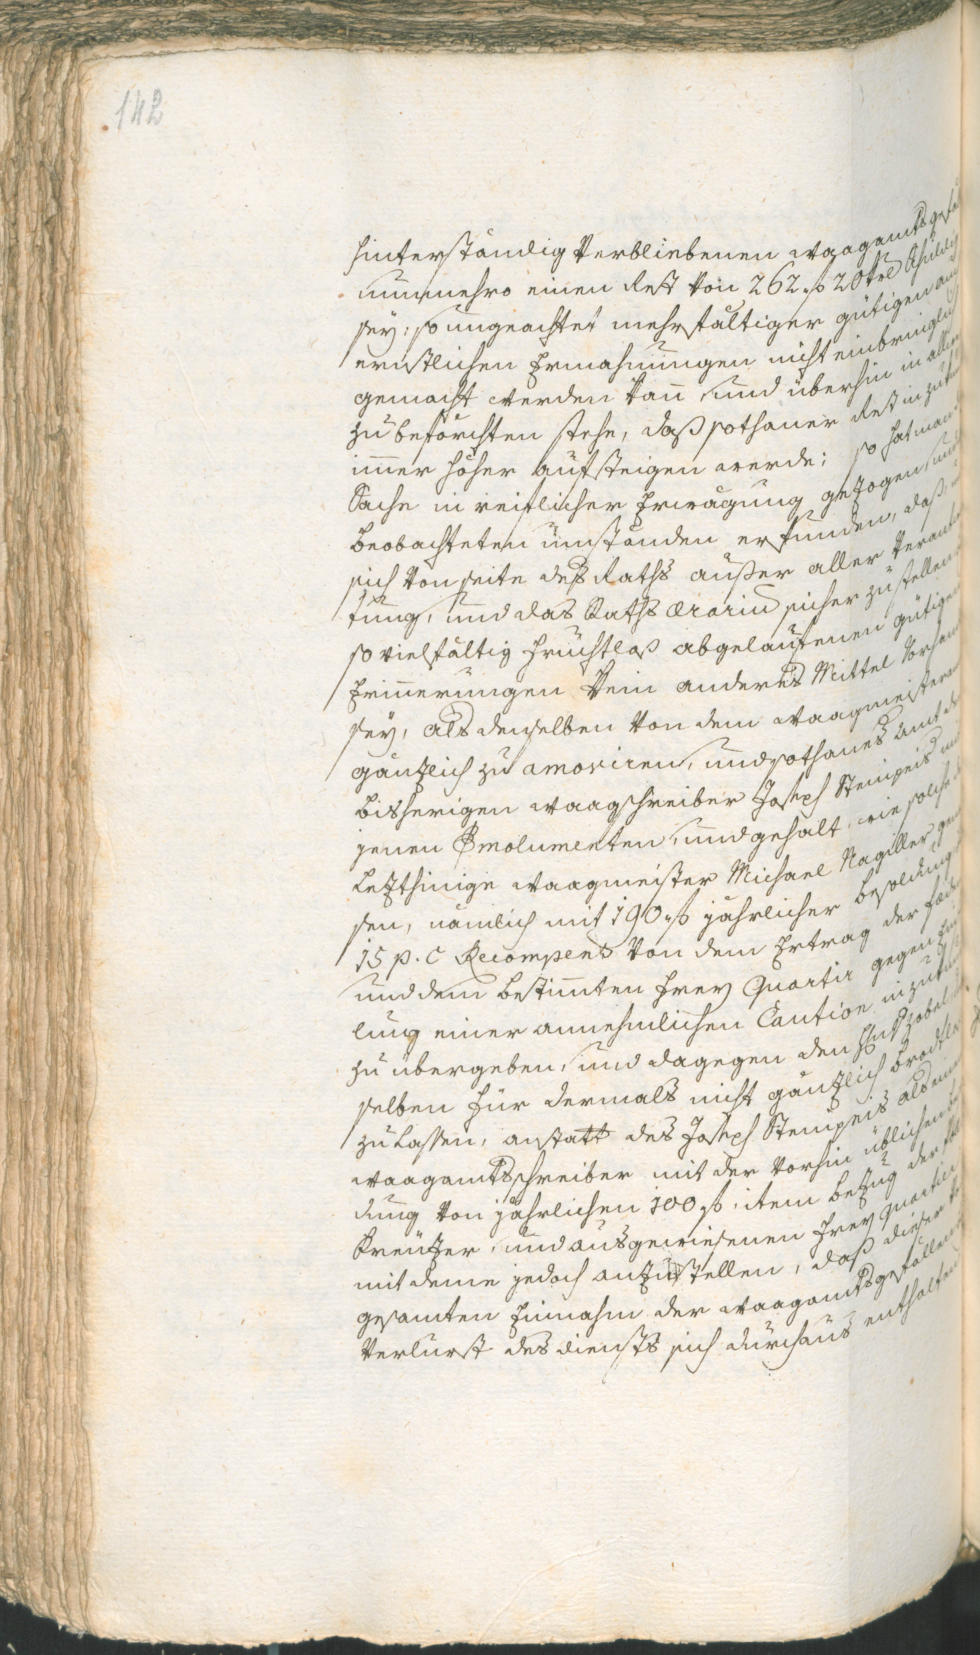 142
hinterständig Verbliebenen waagamtsgefäl
nunmehro einen Rest von 262 f 20 kr schuldig
sey: so ungeachtet mehrfältiger gütigen und
ernstlichen Ermahnungen nicht einbringlich
gemacht werden kan und überhin in allweg
zu beförchten stehe, daß sothaner Rest
immer höher aufsteigen werde: so hat man
Sache in reiflicher Erwägung gezogen, und
beobachteten umständen erfunden, daß
sich von seite des Raths außer aller Verantwor
tung, und das Raths Ærariu sicher zu stellen
so vielfältig fruchtloß abgelaufenen gütigen
Erinnerungen kein anderes Mittel Vorhan
sey, als denselben von dem waagmeister
gäntzlich zu amoviren, und sothanes Amt
bisherigen waagschreiber Joseph Stempeis
jenen Emolumenten, und gehalt, wie solche
letzthinige waagmeister Michael Nagiller
sen, nämlich mit 190 f jährlicher besoldung
15 p. C Recompens von dem Ertrag der
und dem bestimten frey Quartir gegen
lung einer annehmlichen Caution
zu übergeben, und dagegen den Zobel
selben für dermals nicht gäntzlich brodlos
zu lassen, anstatt des Joseph Stempeis als
waagamtsschreiber mit der vorhin üblichen
dung von jährlichen 100 f. item bezug der
Kreützer, und ausgewiesenen frey Quartier
mit deme jedoch anzustellen, daß dieser
gesamten Einnahm der waagamtsgefällen
Verlurst des diensts sich durchaus enthalten